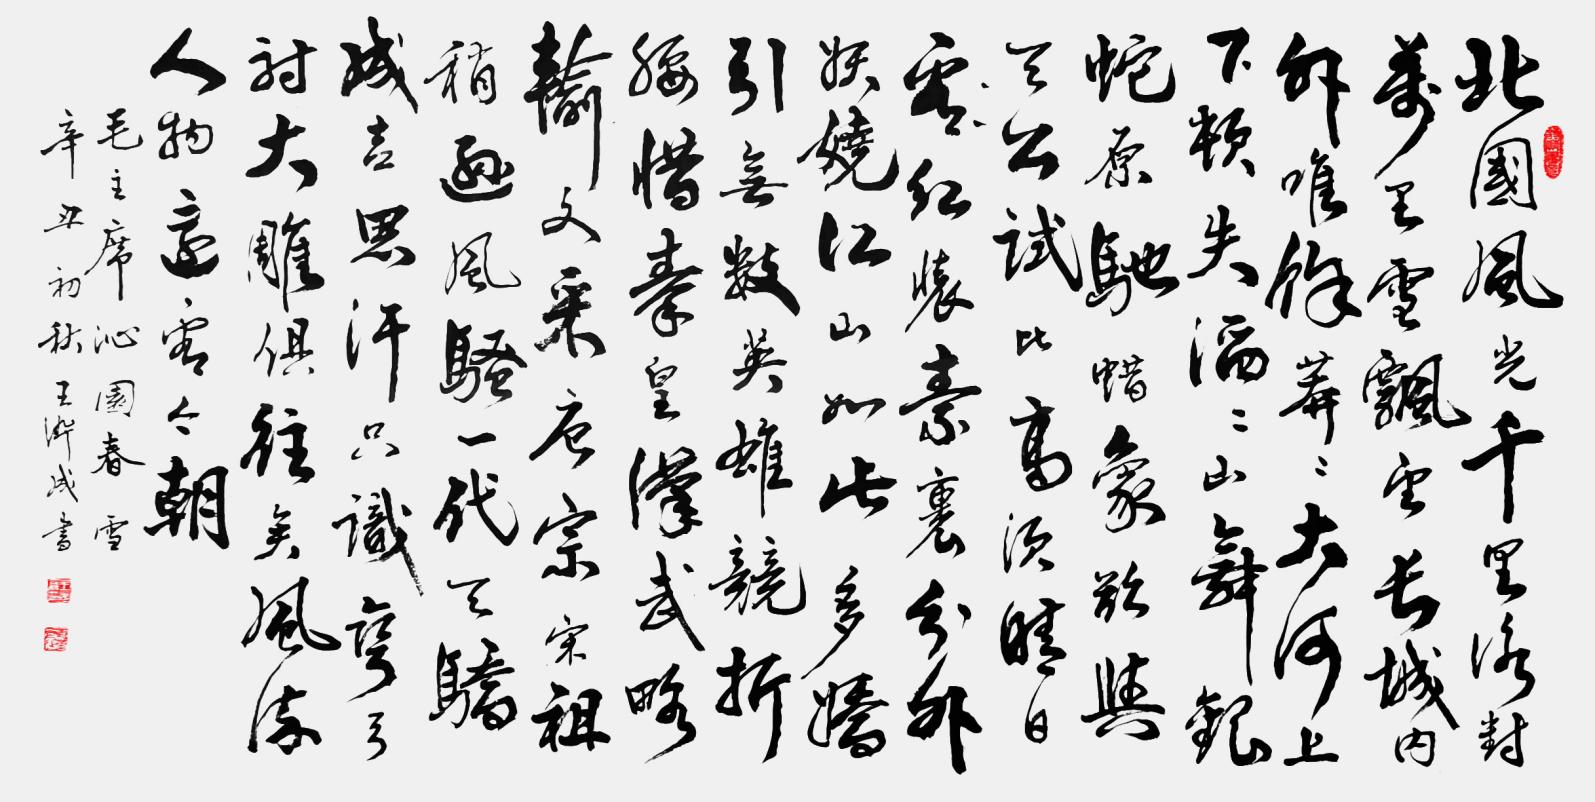 北國風光千里冰封
萬里雪飄望長城内
外唯餘莽〻大河上
下頓失滔〻山舞銀
蛇原馳蜡象欲與
天公試比高須晴日
看紅裝素裹分外
妖嬈江山如此多嬌
引無數英雄競折
腰惜秦皇漢武略
輸文采唐宗宋祖
稍遜風騷一代天驕
成吉思汗只識彎弓
射大雕俱往矣風流
人物還看今朝
毛主席沁園春雪
辛丑初秋王成書